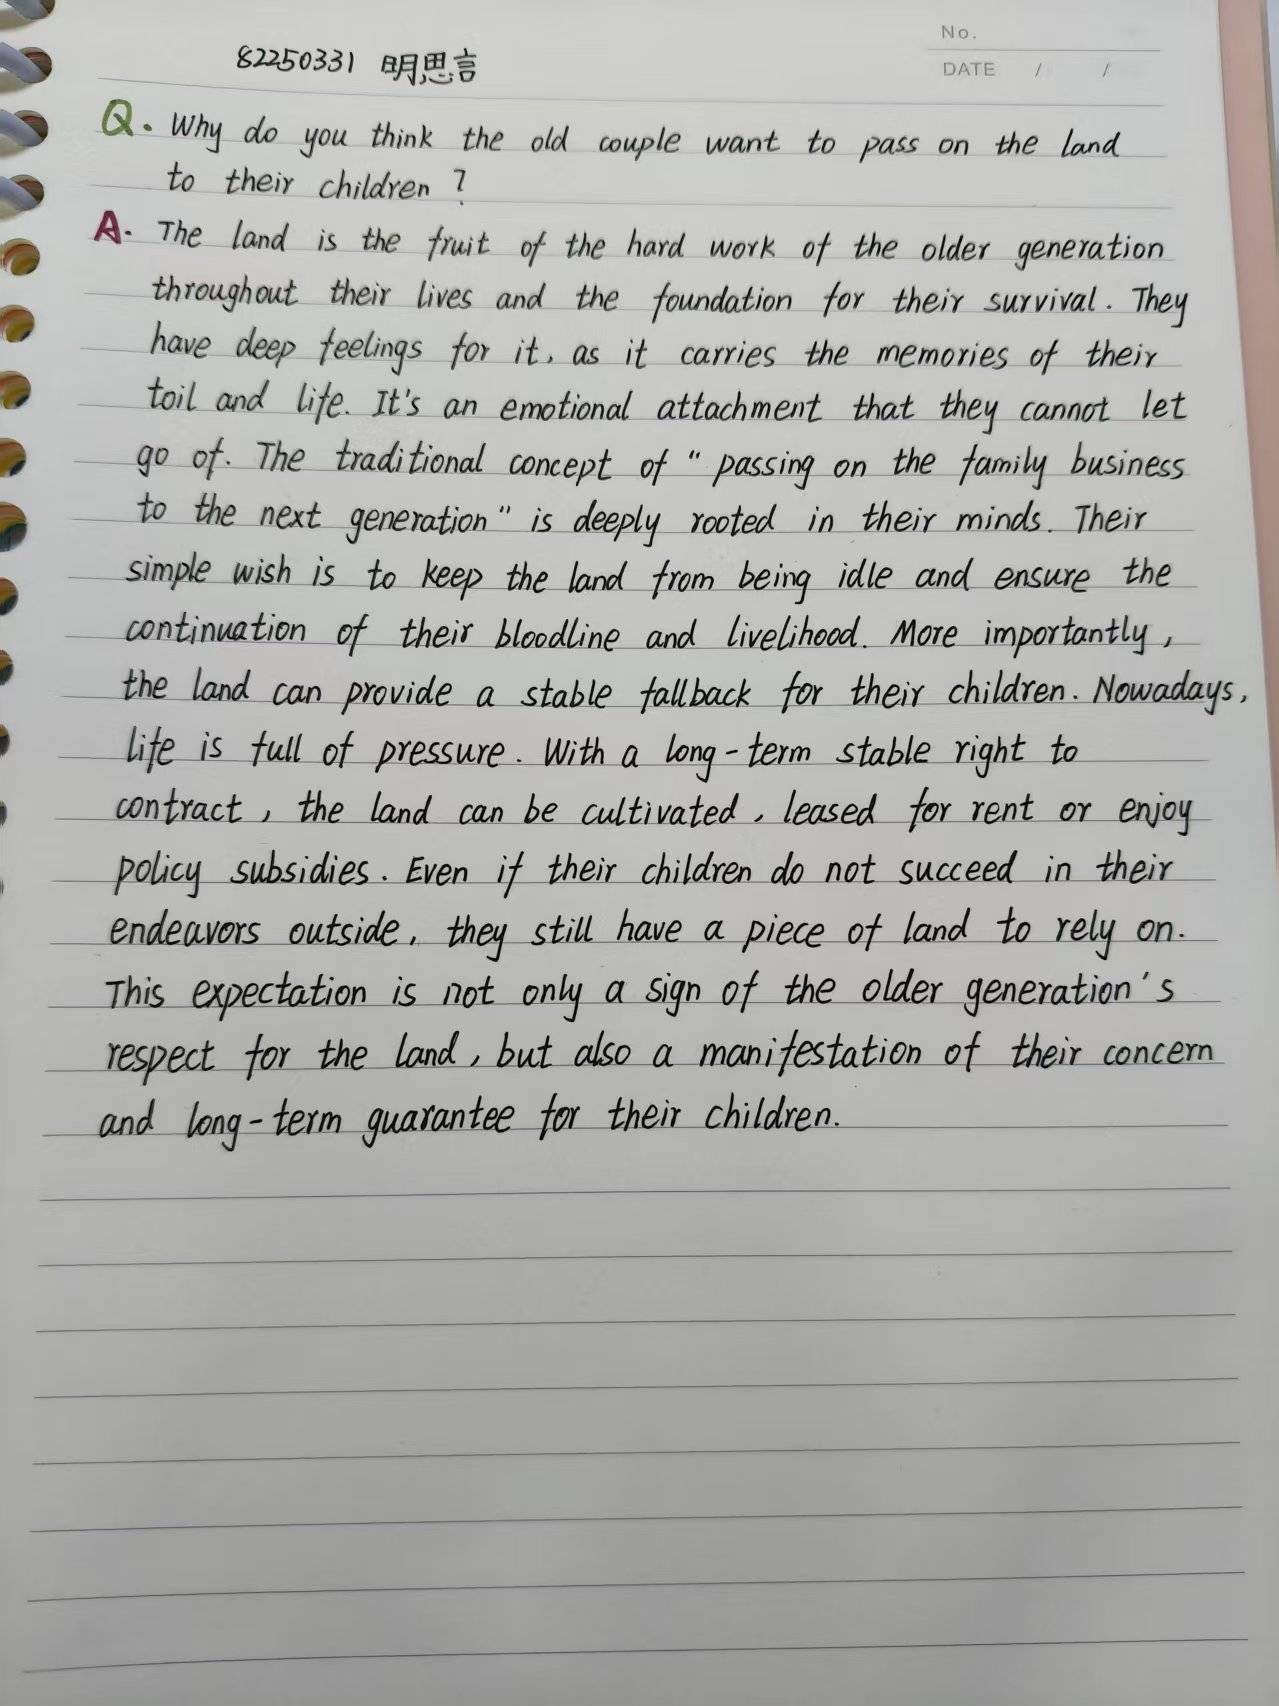 No.
82250331 明思言
DATE / /
Q. Why do you think the old couple want to pass on the land
to their children?
A. The land is the fruit of the hard work of the older generation
throughout their lives and the foundation for their survival. They
have deep feelings for it, as it carries the memories of their
toil and life. It's an emotional attachment that they cannot let
go of. The traditional concept of "passing on the family business
to the next generation" is deeply rooted in their minds. Their
simple wish is to keep the land from being idle and ensure the
continuation of their bloodline and livelihood. More importantly,
the land can provide a stable fallback for their children. Nowadays,
life is full of pressure. With a long-term stable right to
contract, the land can be cultivated, leased for rent or enjoy
policy subsidies. Even if their children do not succeed in their
endeavors outside, they still have a piece of land to rely on.
This expectation is not only a sign of the older generation's
respect for the land, but also a manifestation of their concern
and long-term guarantee for their children.